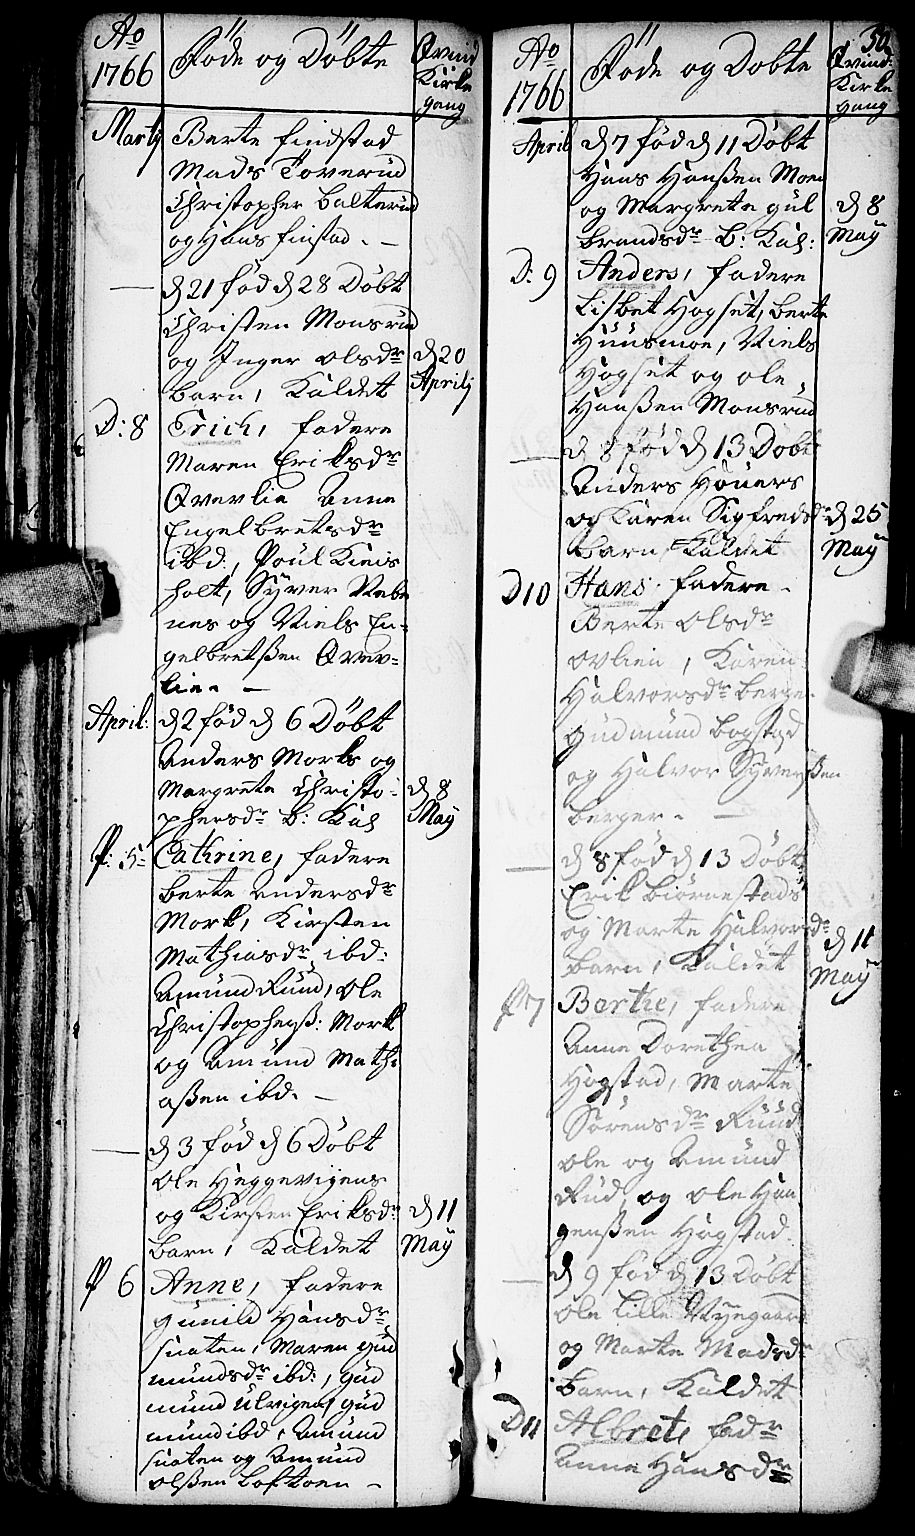 Ao
1766
Föde og Döbte
Qvind
Kirke
gang
Martij
Berte Findstad
Mads Toverud
Christopher Balterud
og Hans Finstad. —
— d 21 fød d 28 Døbt
Christen Monsrud
og Inger Olsdr
barn, Kaldet
d 20
Aprilj
D: 8
Erich, fadere
Maren Eriksdr
Qverlie Anne
Engelbretsdr
ibd:, Poul
holt, Syver Nebe
nes og Niels En=
gelbretßen Qver=
lien. —
April:
d 2 fød d 6 Døbt
Anders Morks og
Margrete Christo-
phersdr b: Kal
d 8
May
P: 5=
Cathrine, fadere
berte Andersdr
Mork, Kirsten
Mathiasdr ibd:
Amund Ruud, Ole
Christopherß: Mork
og Amund Mathi
aßen ibd. —
— d 3 fød d 6 Døbt
Ole Heggevigens
og Kirsten Eriksdr
barn, Kaldet
d 11
May
P 6
Anne, fadere
Gunild Hansdr
Maren Gud
mundsdr ibd:, Gud
mund Ulvigen, Gud
mund ibd, Amund
og Amund
olßen Loftoen —
Ao
1766
Föde og Döbte
50.
Qvind:
Kirke
gang
April
d 7 fød d 11 Døbt
Hans Hanßen Moen
og Margrete Gul
brandsdr b: Kal:
d 8
May
D: 9
Anders, fadere
Lisbet Hogset, berte
Huusmoe, Niels
Hogset og Ole
Hanßen Monsrud
— d 8 fød d 13 Døbt
Anders Høuers
og Karen Sigfredsdr
barn Kaldet
d 25
May
D 10
Hans, fadere
Berte Olsdr
ovlien, Karen
Halvorsdr berge
Gudmund bogstad
og Halvor Syverßen
berger. —
— d 8 fød d 13 Døbt
Erik Biørnestads
og Marte Halvorsdr
barn, Kaldet
d 11
May
P 7
Berthe, fadere
Anne Dorethea
Hogstad, Marte
Sørensdr Ruud
Ole og Amund
Rud, og Ole Han
ßen Hogstad.
— d 9 fød d 13 Døbt
Ole Lille
og Marte Madsdr
barn, Kaldet
D 11
Albret, fadr
Anne Hansdr